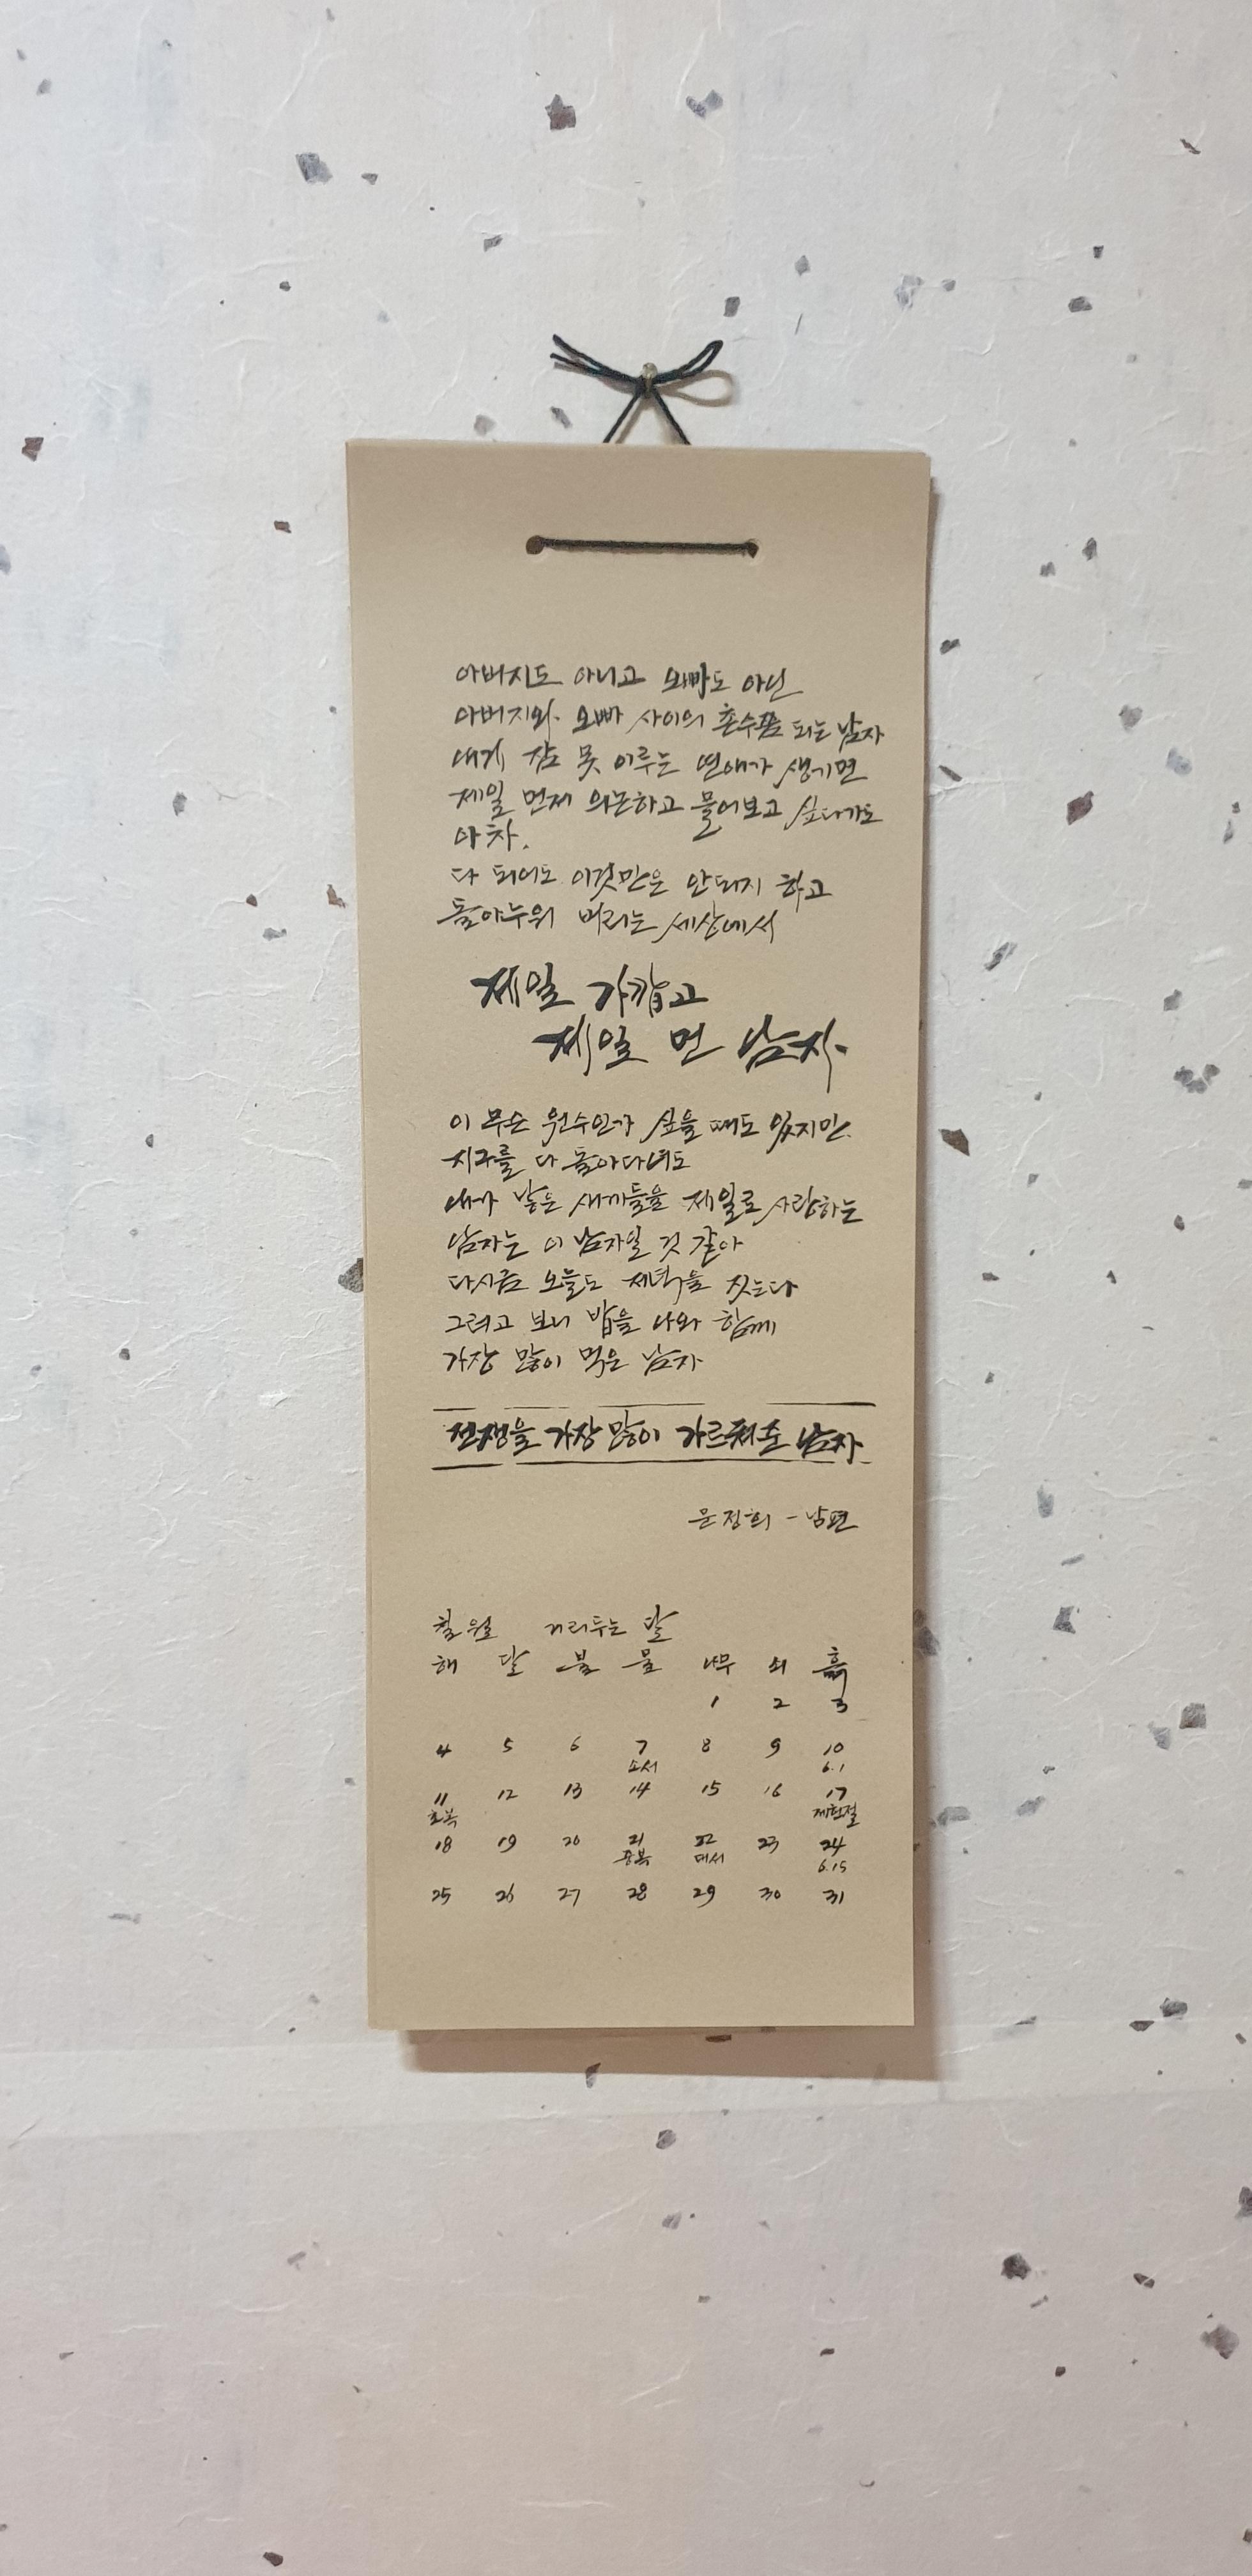 아버지도 아니고 오빠도 아닌
아버지와 오빠 사이의 촌수쯤 되는 남자
내게 잠 못 이루는 연애가 생기면
제일 먼저 의논하고 물어보고 싶다가도
아차,
다 되어도 이것만은 안되지 하고
돌아누워 버리는 세상에서
제일 가깝고
제일 먼 남자
이 무슨 원수인가 싶을 때도 있지만
지구를 다 돌아다녀도
내가 낳은 새끼들을 제일로 사랑하는
남자는 이 남자일 것 같아
다시금 오늘도 저녁을 짓는다
그러고 보니 밥을 나와 함께
가장 많이 먹은 남자
전쟁을 가장 많이 가르쳐준 남자
문정희 - 남편
칠월 거리두는 달
해 달 불 물 나무 쇠 흙
1 2 3
4 5 6 7 8 9 10
소서 6.1
11 12 13 14 15 16 17
초복 제헌절
18 19 20 21 22 23 24
중복 대서 6.15
25 26 27 28 29 30 31